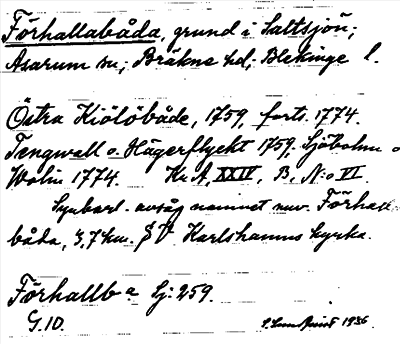 Förhallabåda, grund i Saltsjön;
Asarum sn; Bräkne hd; Blekinge l.
Östra Kiölöbåde, 1759, forts. 1774.
Tengwall o. Hägerflycht 1759, Sjöbohm o
Wolin 1774. Kr. A, XXIV, B, N:o VI.
Synbarl. avsåg namnet nuv. Förhall-
båda, 3,7 km. S V Karlshamns kyrka.
Förhallb a Sj: 259.
G. 10. 1936